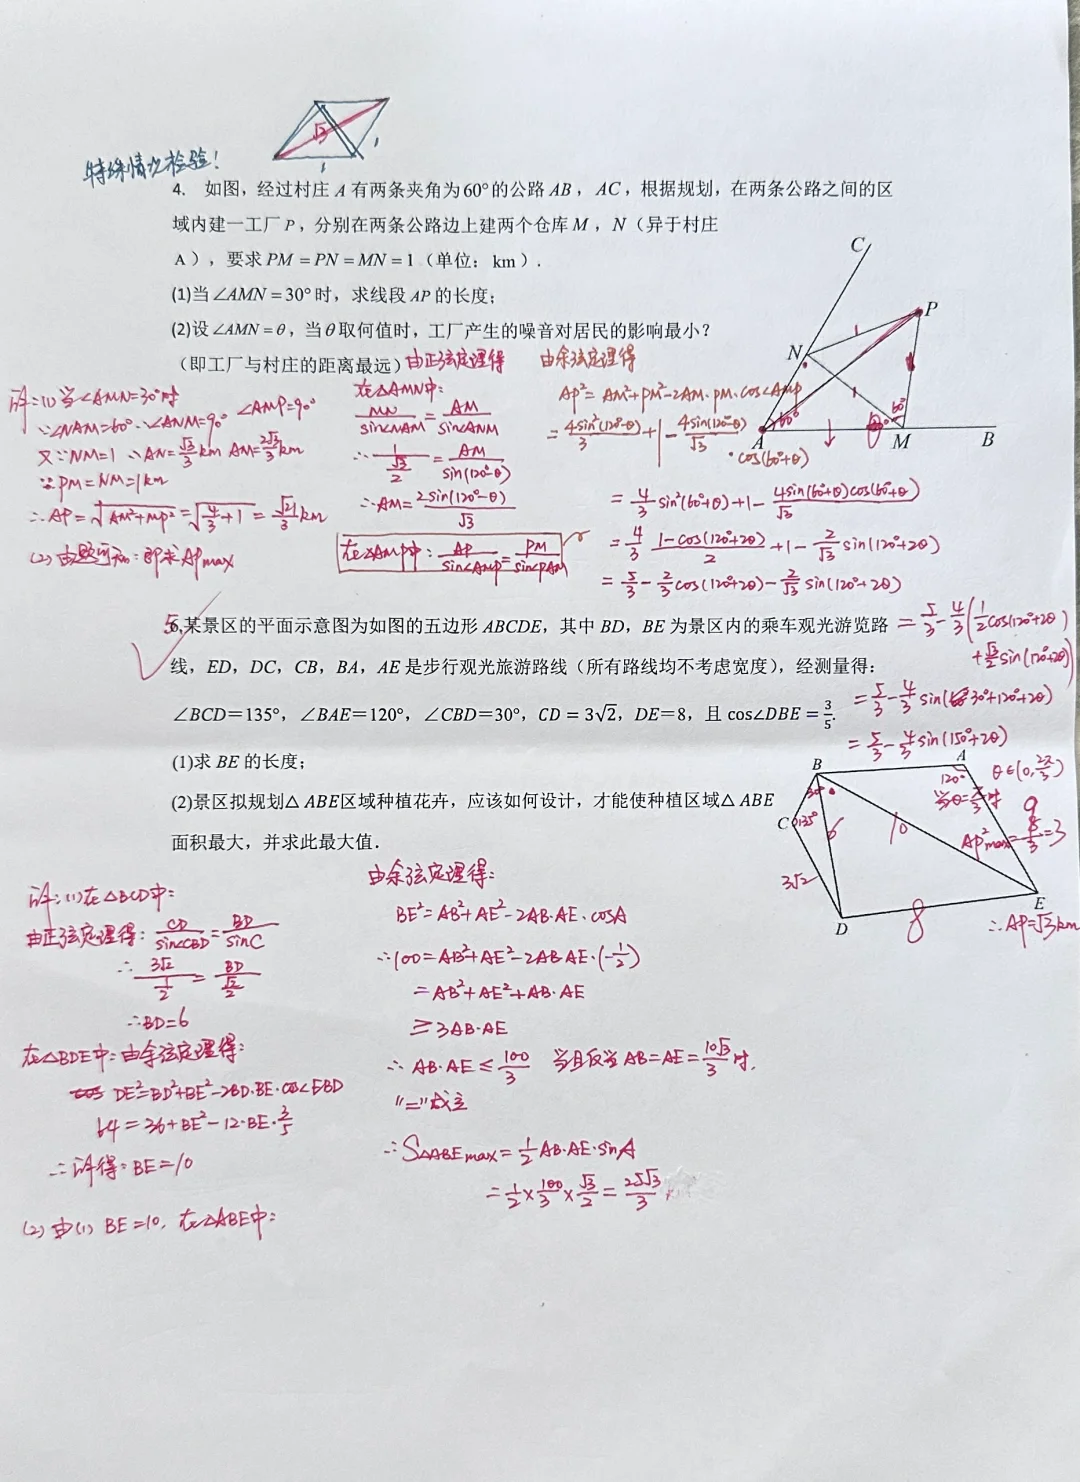 特殊情况检验!
√3
1
1
4. 如图，经过村庄 A 有两条夹角为60°的公路 AB，AC，根据规划，在两条公路之间的区
域内建一工厂 P，分别在两条公路边上建两个仓库 M，N（异于村庄
A），要求 PM = PN = MN = 1（单位：km）.
(1)当∠AMN = 30°时，求线段 AP 的长度；
(2)设∠AMN = θ，当θ取何值时，工厂产生的噪音对居民的影响最小？
（即工厂与村庄的距离最远）
C
P
N
A
M
B
1
1
60°
60°
θ
解:(1)当∠AMN=30°时
∵∠NAM=60° ∴∠ANM=90° ∠AMP=90°
又∵NM=1 ∴AN=√3/3km AM=2√3/3km
∵PM=NM=1km
∴AP=√(AM²+MP²)=√(4/3+1)=√21/3km
(2)由题可知:即求APmax
由正弦定理得
在△AMN中:
MN/sin∠NAM=AM/sin∠ANM
∴1/(√3/2)=AM/sin(120°-θ)
∴AM=2sin(120°-θ)/√3
在△AMP中:AP/sin∠AMP=PM/sin∠PAM
由余弦定理得
AP²=AM²+PM²-2AM·PM·cos∠AMP
=4sin²(120°-θ)/3+1-4sin(120°-θ)/√3
·cos(60°+θ)
=4/3sin²(60°+θ)+1-4sin(60°+θ)cos(60°+θ)/√3
=4/3·(1-cos(120°+2θ))/2+1-2/√3sin(120°+2θ)
=5/3-2/3cos(120°+2θ)-2/√3sin(120°+2θ)
=5/3-4/3(1/2cos(120°+2θ)
+√3/2sin(120°+2θ))
=5/3-4/3sin(30°+120°+2θ)
=5/3-4/3sin(150°+2θ)
θ∈(0,2π/3)
当θ=π/3时
AP²max=9/3=3
∴AP=√3km
5
6,某景区的平面示意图为如图的五边形 ABCDE，其中 BD，BE 为景区内的乘车观光游览路
线，ED，DC，CB，BA，AE 是步行观光旅游路线（所有路线均不考虑宽度），经测量得：
∠BCD＝135°，∠BAE＝120°，∠CBD＝30°，CD = 3√2，DE=8，且 cos∠DBE = 3/5.
(1)求 BE 的长度；
(2)景区拟规划△ ABE区域种植花卉，应该如何设计，才能使种植区域△ ABE
面积最大，并求此最大值．
B
A
120°
30°
C
135°
6
10
3√2
D
8
E
解:(1)在△BCD中:
由正弦定理得:CD/sin∠CBD=BD/sinC
∴3√2/(1/2)=BD/(√2/2)
∴BD=6
在△BDE中:由余弦定理得:
DE²=BD²+BE²-2BD·BE·cos∠EBD
64=36+BE²-12·BE·3/5
∴解得:BE=10
(2)由(1)BE=10,在△ABE中:
由余弦定理得:
BE²=AB²+AE²-2AB·AE·cosA
∴100=AB²+AE²-2AB·AE·(-1/2)
=AB²+AE²+AB·AE
≥3AB·AE
∴AB·AE≤100/3 当且仅当AB=AE=10√3/3时,
"="成立
∴S△ABEmax=1/2AB·AE·sinA
=1/2×100/3×√3/2=25√3/3